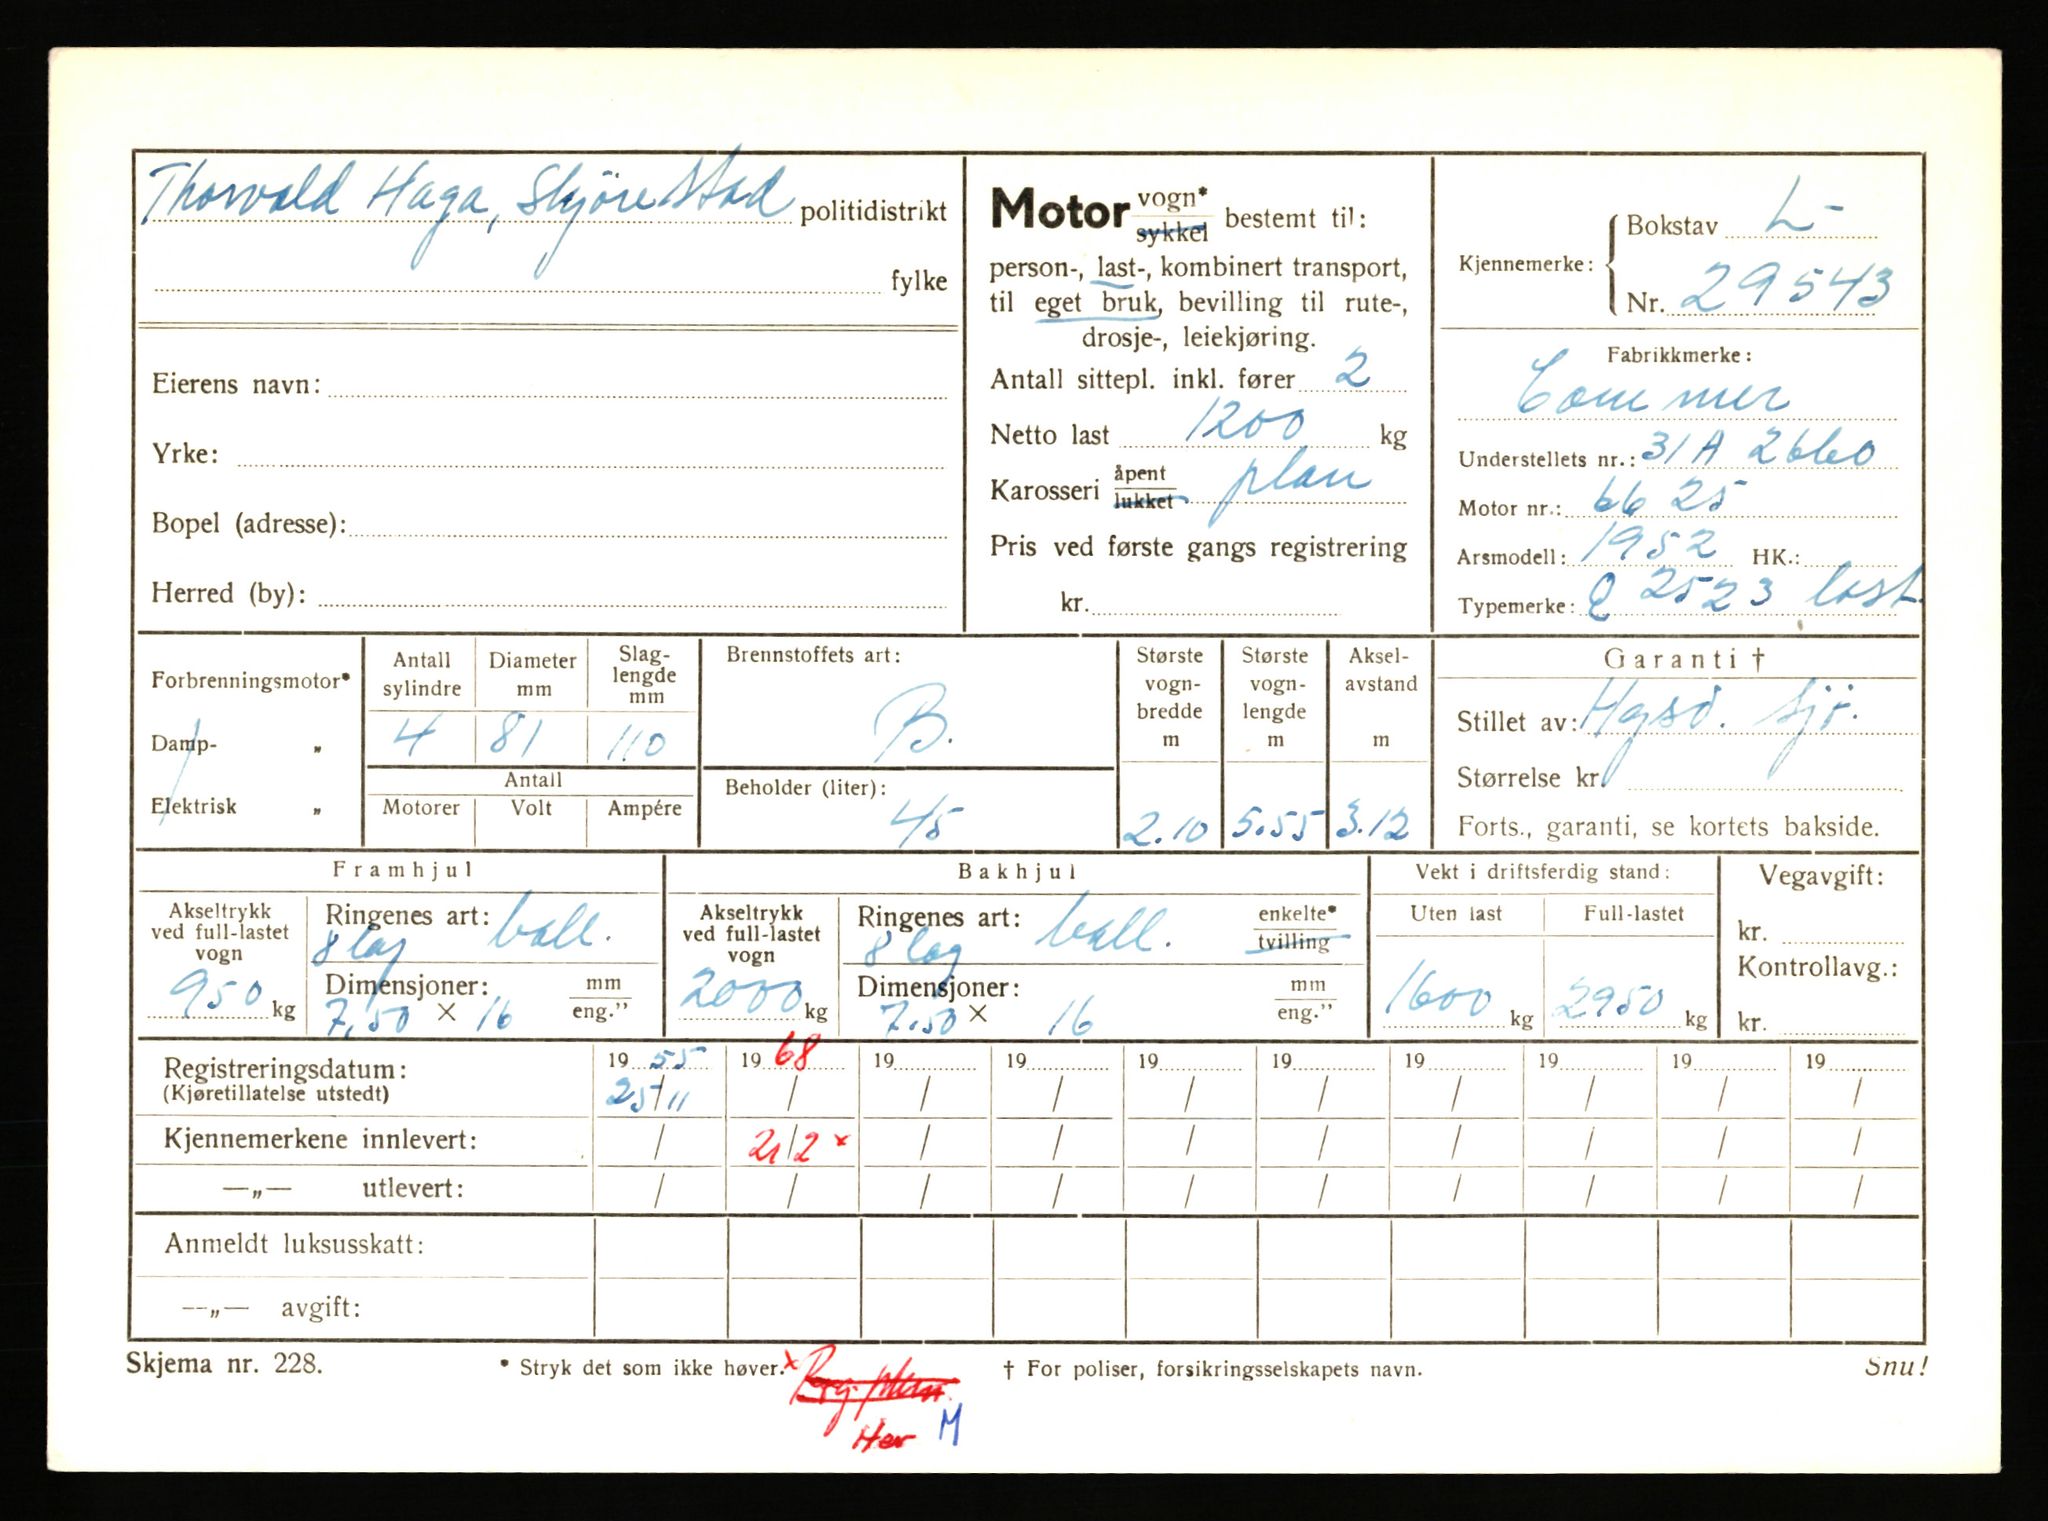 Thorvald Haga, Skjørestad politidistrikt
fylke
Eierens navn:
Yrke:
Bopel (adresse):
Herred (by):
Motor vogn* sykkel bestemt til:
person-, last-, kombinert transport,
til eget bruk, bevilling til rute-,
drosje-, leiekjøring.
Antall sittepl. inkl. fører 2
Netto last 1200 kg
Karosseri åpent lukket plan
Pris ved første gangs registrering
kr.
Kjennemerke: Bokstav L-
Nr. 29543
Fabrikkmerke:
Commer
Understellets nr.: 31A 2660
Motor nr.: 6625
Arsmodell: 1952 HK.:
Typemerke: Q 2523 last.
Forbrenningsmotor*
Damp- „
Elektrisk „
Antall sylindre
4
Diameter mm
81
Slag-lengde mm
110
Antall
Motorer Volt Ampére
Brennstoffets art:
B.
Beholder (liter):
45
Største vogn-bredde m
2.10
Største vogn-lengde m
5.55
Aksel-avstand m
3.12
Garanti †
Stillet av: Hgsd. Sjø.
Størrelse kr.
Forts., garanti, se kortets bakside.
Framhjul
Akseltrykk ved full-lastet vogn
950 kg
Ringenes art: ball.
8 lag
Dimensjoner: mm eng."
7,50 × 16
Bakhjul
Akseltrykk ved full-lastet vogn
2000 kg
Ringenes art: ball. enkelte* tvilling
8 lag
Dimensjoner: mm eng."
7.50 × 16
Vekt i driftsferdig stand:
Uten last Full-lastet
1600 kg 2950 kg
Vegavgift:
kr.
Kontrollavg.:
kr.
Registreringsdatum: 1955 1968 19 19 19 19 19 19 19 19
(Kjøretillatelse utstedt) 25/11 / / / / / / / / /
Kjennemerkene innlevert: / 21/2 x / / / / / / / /
—„— utlevert: / / / / / / / / / /
Anmeldt luksusskatt:
—„— avgift:
Skjema nr. 228. * Stryk det som ikke høver. † For poliser, forsikringsselskapets navn. Snu!
x
Her M